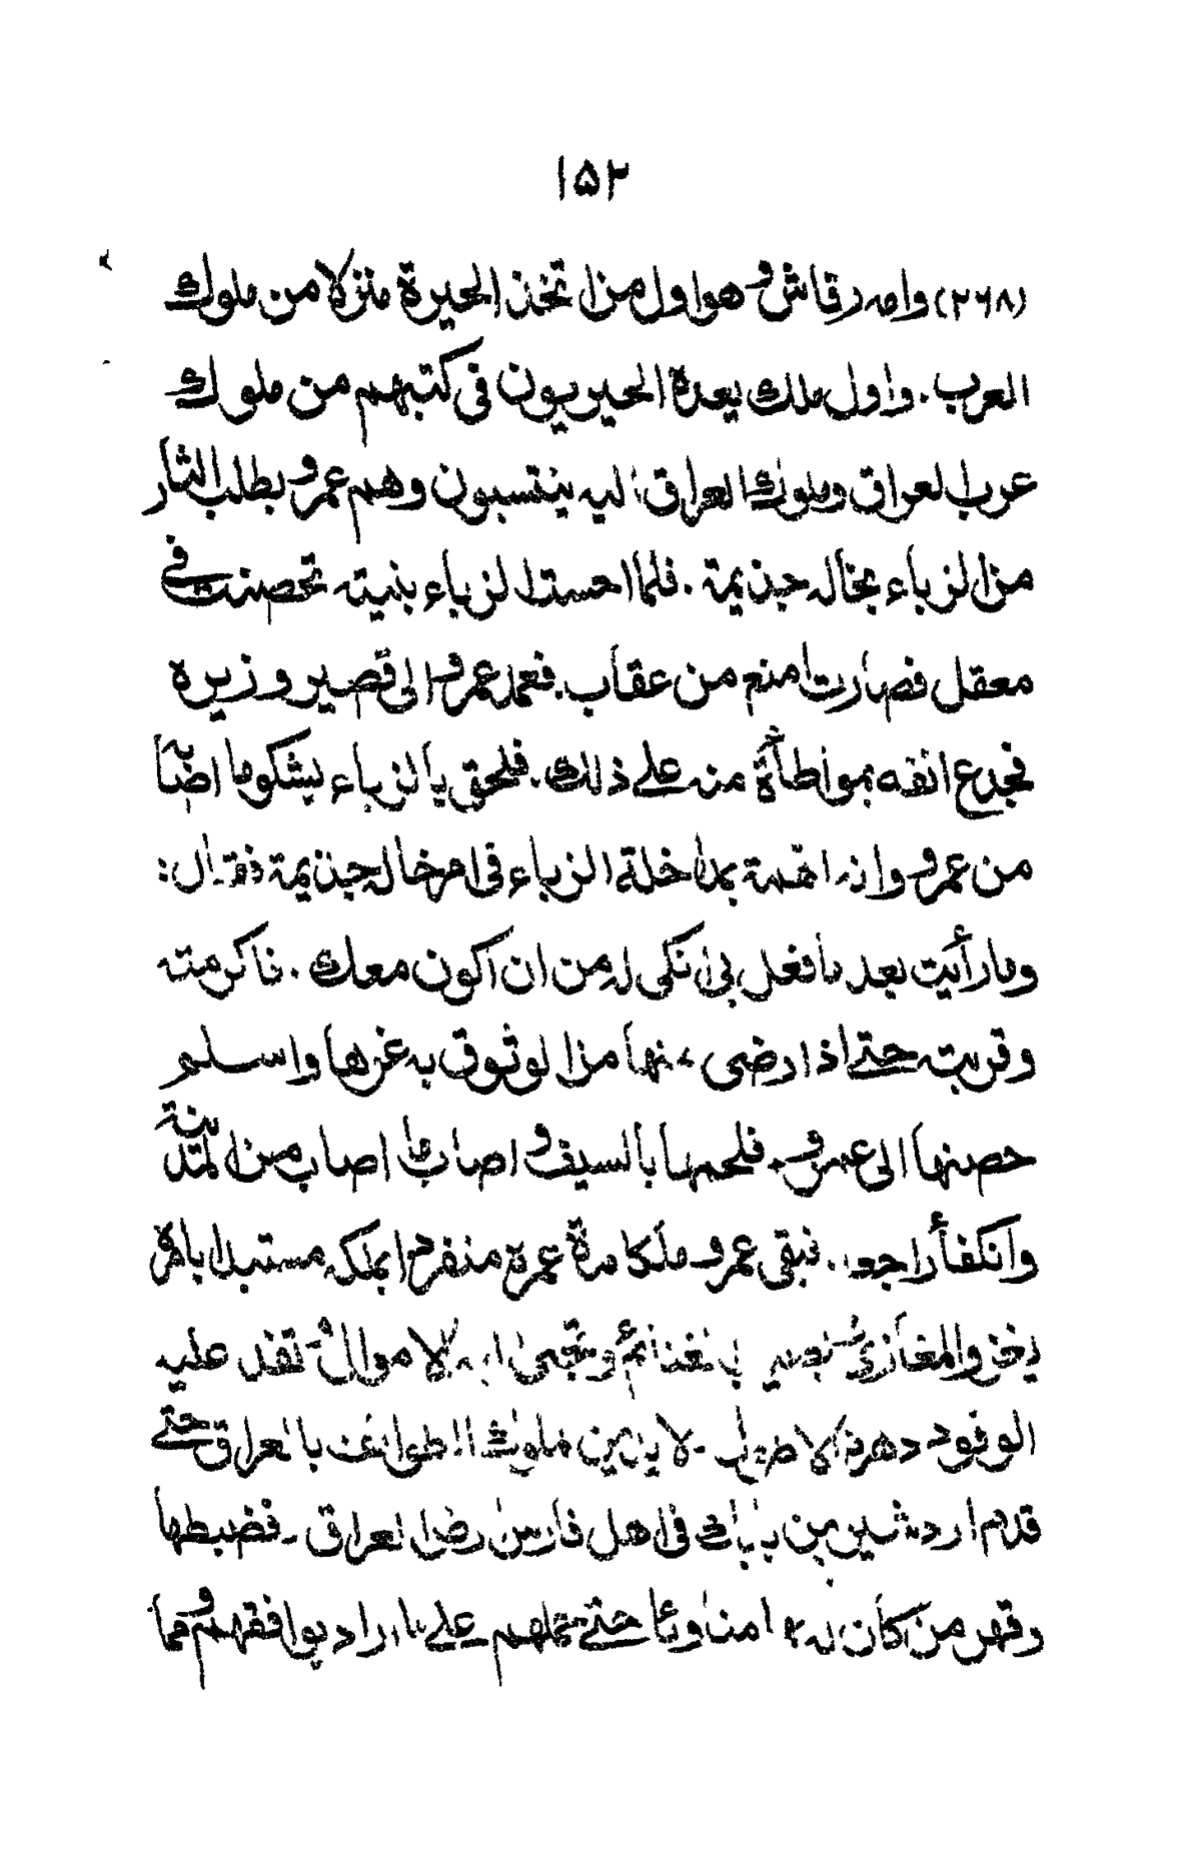 ۱۵۲
(۲۶۸) وامه رقاش وهو اول من اتخذ الحيرة منزلا من ملوك
العرب. واول ملك يعده الحيريون فى كتبهم من ملوك
عرب العراق وملوك العراق اليه ينتسبون وهم عمرو بطلب الثار
من الزباء بخاله جذيمة. فلما احست الزباء بنيته تحصنت فى
معقل فصارت امنع من عقاب. فعمد عمرو الى قصير وزيره
فجدع انفه بمواطأة منه على ذلك. فلحق بالزباء يشكو ما اصابه
من عمرو وانه اتهمه بمداخلة الزباء فى امر خاله جذيمة فقال:
وما رأيت بعد ما فعل بى انكى له من ان اكون معك. فاكرمته
وقربته حتى اذا رضى منها من الوثوق به غزها واسلم
حصنها الى عمرو. فلحمها بالسيف واصاب ما اصاب من المدينة
وانكفأ راجعا. فبقى عمرو ملكا مدة عمره منفردا بملكه مستبدا بامره
يغزو المغازى ويصيب الغنائم وتجبى اليه الاموال وتفد عليه
الوفود دهره الاطول. لا يدين ملوك الطوائف بالعراق حتى
قدم اردشير بن بابك فى اهل فارس ارض العراق. فضبطها
وقهر من كان له بها مناوئا حتى حملهم على ما اراد يوافقهم ومما